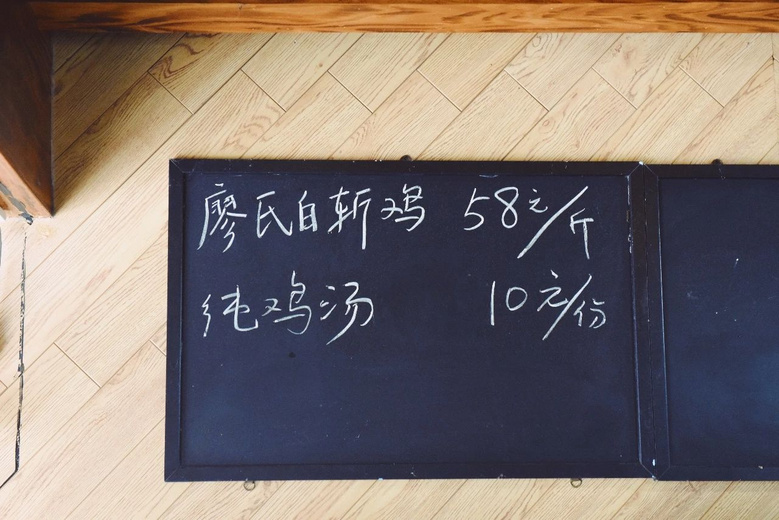 廖氏白斩鸡 58元/斤
纯鸡汤 10元/份